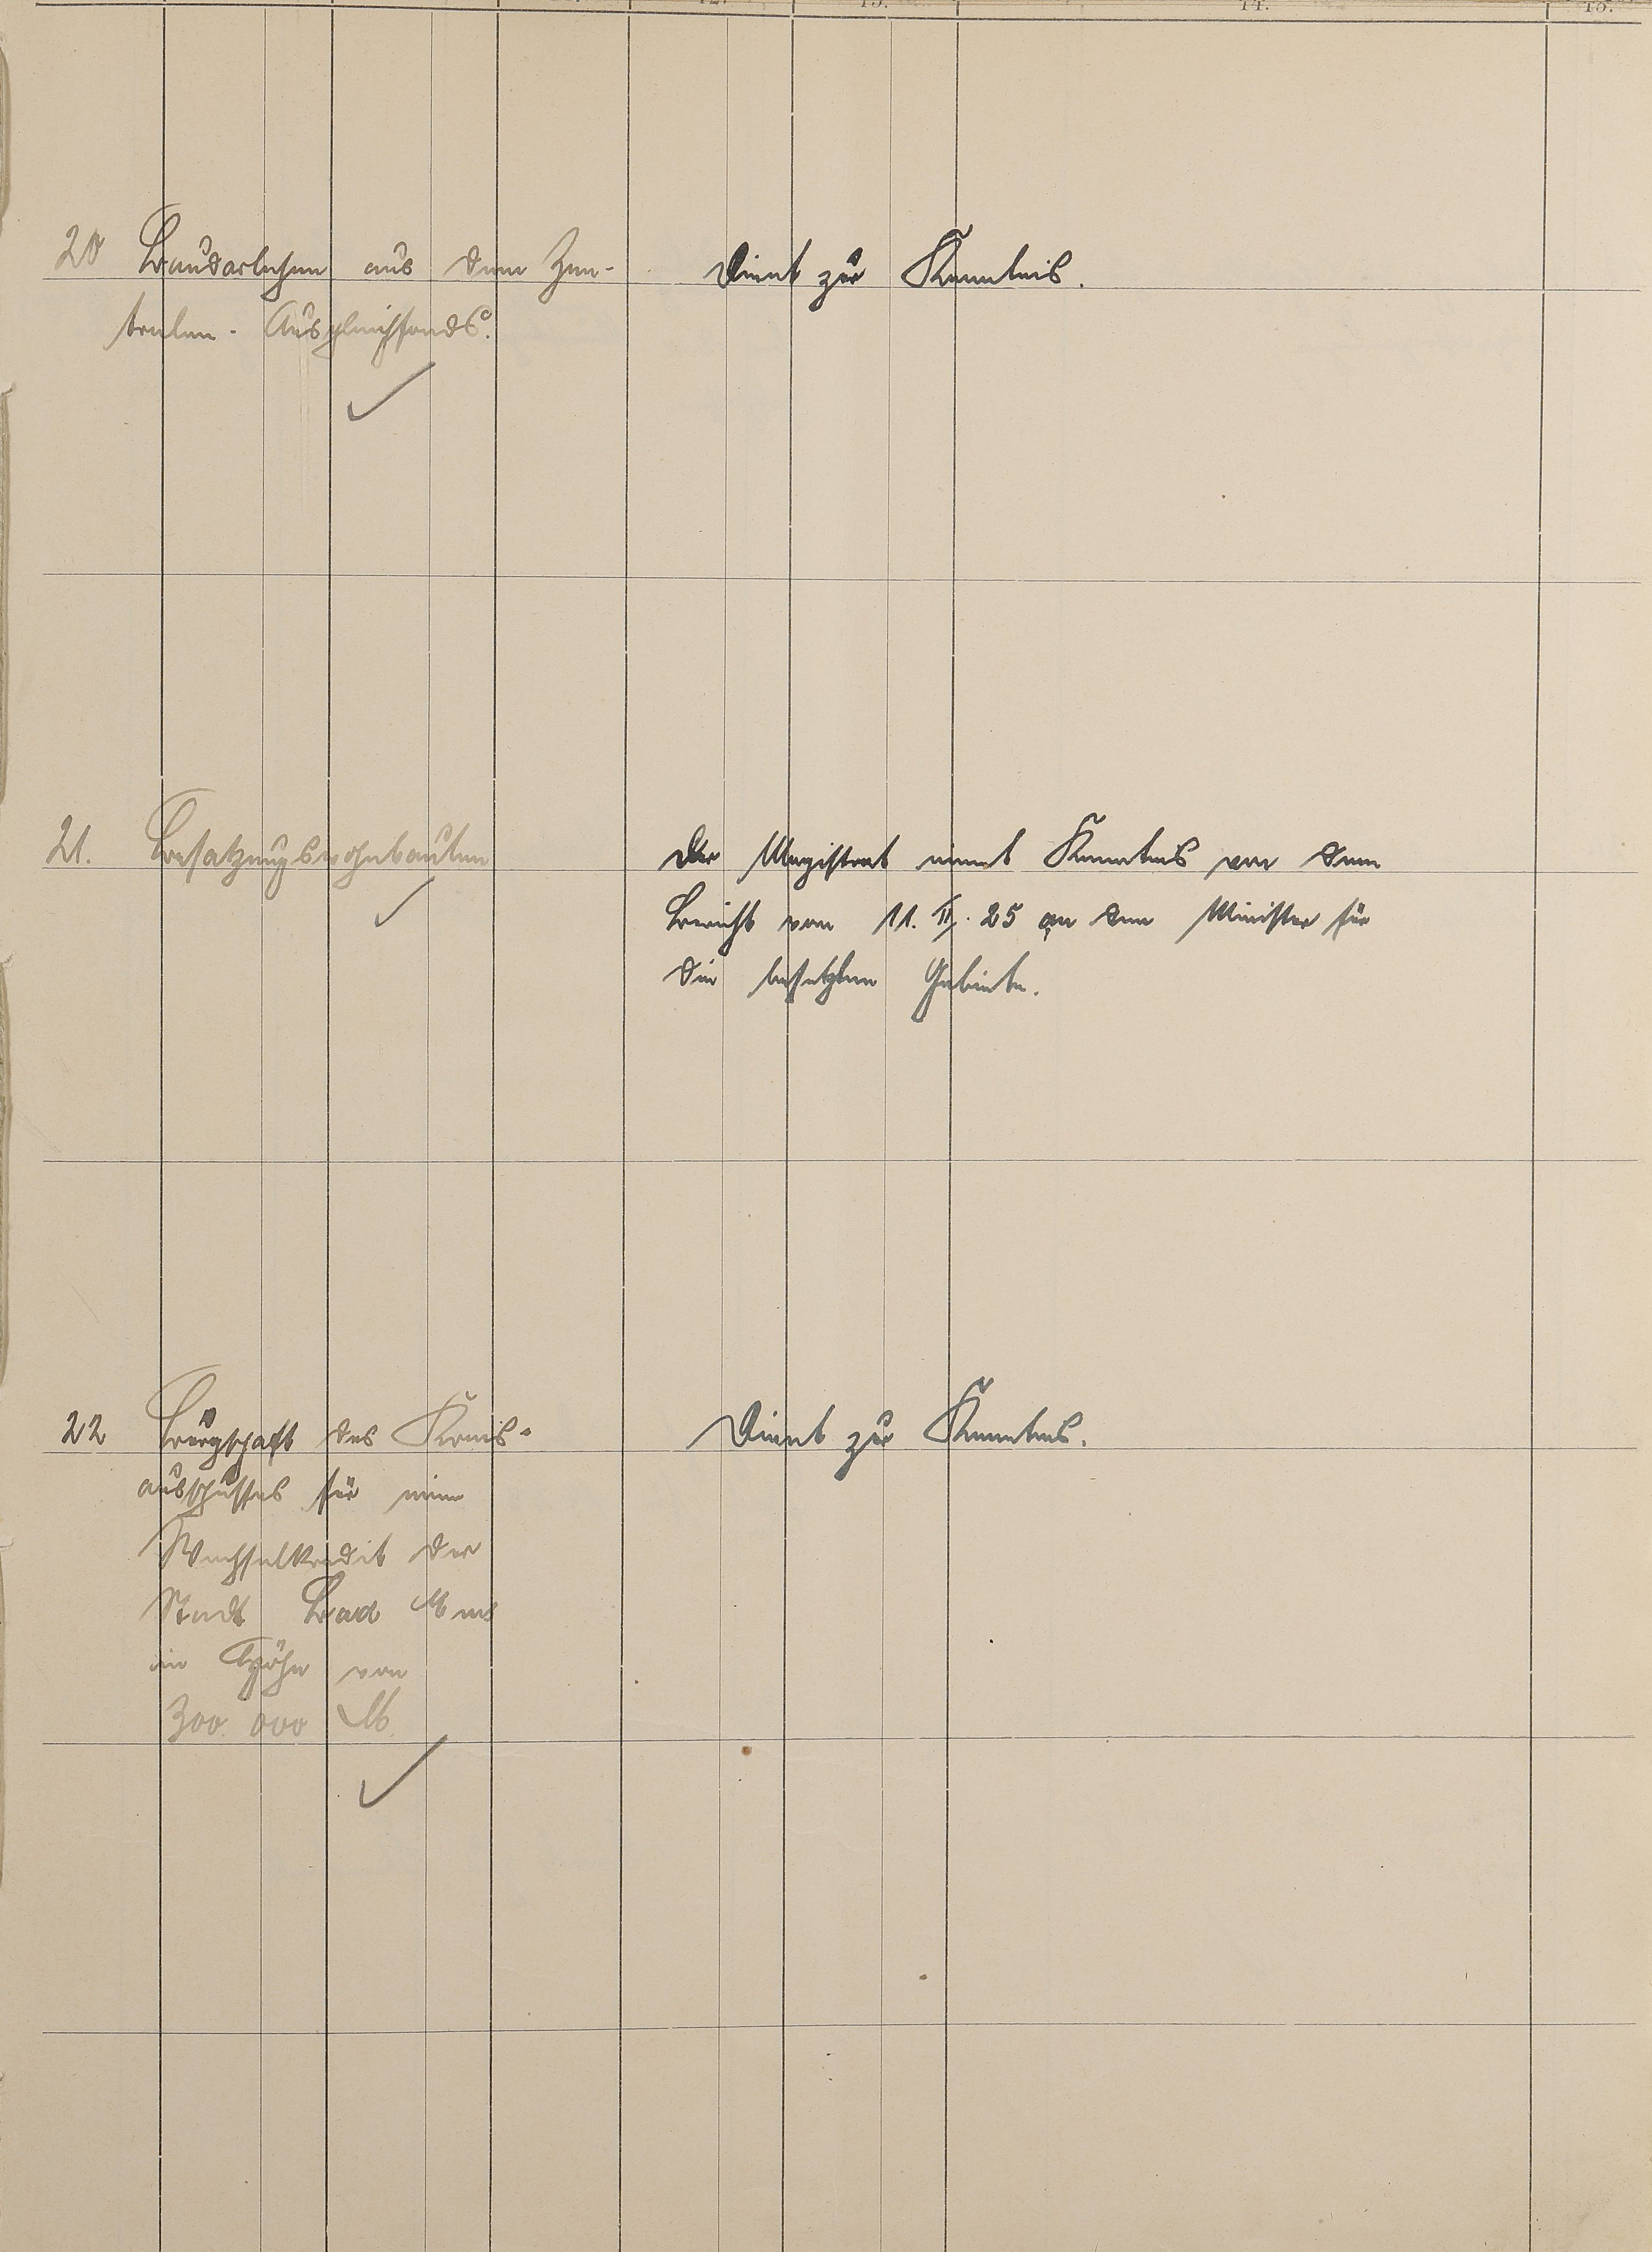 20 Baudarlehen aus dem Zen-
tralen-Ausgleichfonds.
Dient zur Kenntnis.
21. Besatzungswohnbauten
Der Magistrat nimt Kenntnis von dem
Bericht vom 11. II. 25 an den Minister für
die besetzten Gebiete.
22 Bürgschaft des Kreis-
ausschusses für einen
Wechselkredit der
Stadt Bad Ems
in Höhe von
300.000 M.
Dient zur Kenntnis.